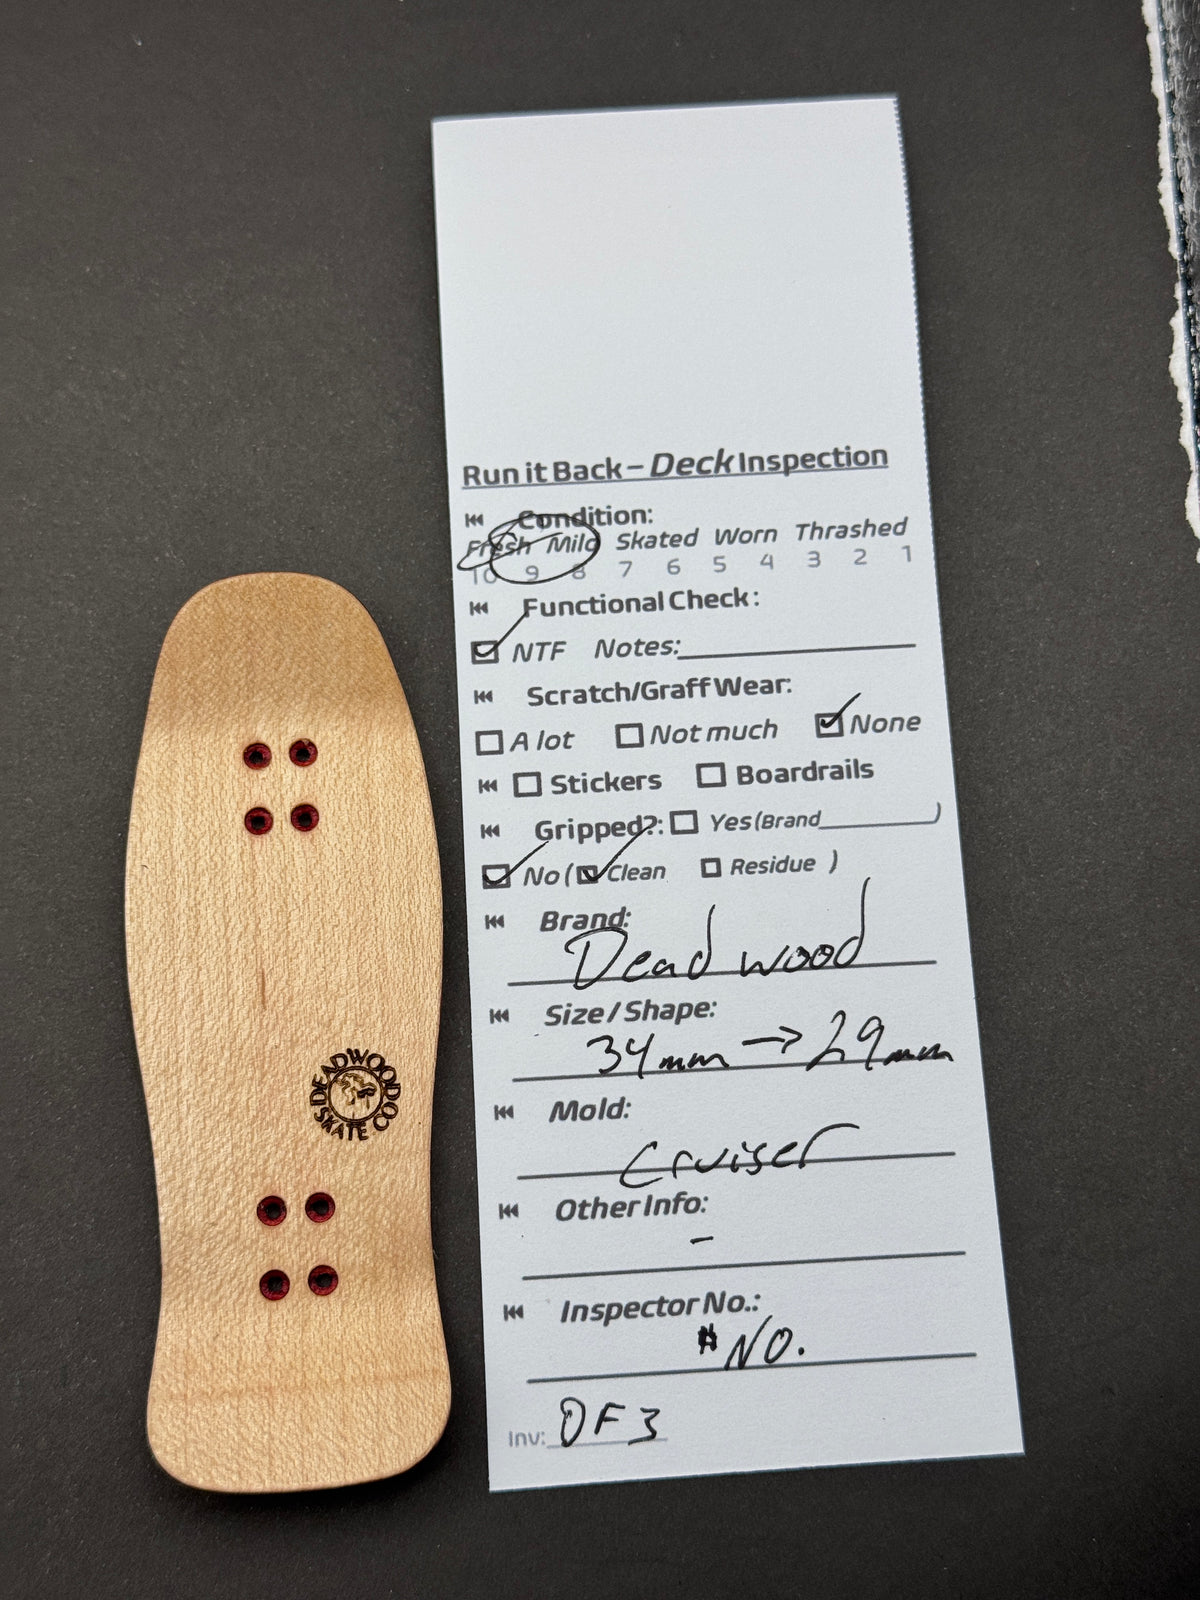 Run it Back – Deck Inspection
Condition:
Fresh Mild Skated Worn Thrashed
10 9 8 7 6 5 4 3 2 1
Functional Check:
NTF Notes:
Scratch/Graff Wear:
A lot Not much None
Stickers Boardrails
Gripped?: Yes (Brand )
No ( Clean Residue )
Brand:
Deadwood
Size / Shape:
34mm → 29mm
Mold:
Cruiser
Other Info:
–
Inspector No.:
#NO.
Inv: DF3
DEADWOOD CO
SKATE